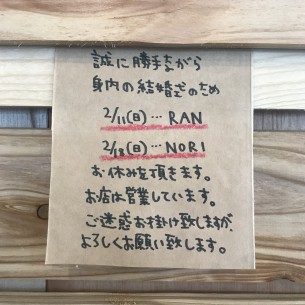 誠に勝手ながら
身内の結婚式のため
2/11(日)… RAN
2/18(日)… NORI
お休みを頂きます。
お店は営業しています。
ご迷惑お掛け致しますが、
よろしくお願い致します。